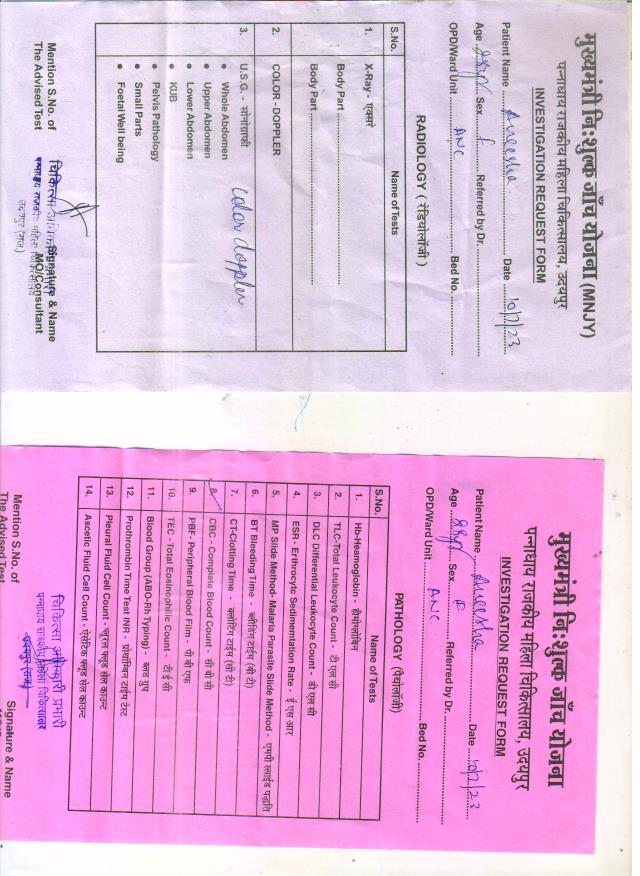 मुख्यमंत्री निःशुल्क जाँच योजना (MNJY)
पन्नाधाय राजकीय महिला चिकित्सालय, उदयपुर
INVESTIGATION REQUEST FORM
Patient Name Aneesha Date 10/7/23
Age 28y Sex f Referred by Dr.
OPD/Ward Unit ANC Bed No.
RADIOLOGY ( रेडियोलॉजी )
S.No. Name of Tests
1. X-Ray - एक्सरे
Body Part
Body Part
2. COLOR - DOPPLER
3. U.S.G. - सोनोग्राफी
• Whole Abdomen
• Upper Abdomen
• Lower Abdomen
• KUB
• Pelvis Pathology
• Small Parts
• Foetal Well being
color doppler
Mention S.No. of Signature & Name
The Advised Test MO/Consultant
चिकित्सा अधिकारी
पन्नाधाय राजकीय महिला चिकित्सालय
उदयपुर (राज.)
मुख्यमंत्री निःशुल्क जाँच योजना
पन्नाधाय राजकीय महिला चिकित्सालय, उदयपुर
INVESTIGATION REQUEST FORM
Patient Name Aneesha Date 10/7/23
Age 28y Sex Referred by Dr.
OPD/Ward Unit ANC Bed No.
PATHOLOGY (पैथोलॉजी)
S.No. Name of Tests
1. Hb-Hemoglobin - हीमोग्लोबिन
2. TLC-Total Leukocyte Count - टी एल सी
3. DLC Differential Leukocyte Count - डी एल सी
4. ESR - Erthrocytc Sedimemtation Rate - ई एस आर
5. MP Slide Method- Malaria Parasite Slide Method - एमपी स्लाईड पद्धति
6. BT Bleeding Time - ब्लीडिंग टाईम (बी टी)
7. CT-Clotting Time - क्लोटिंग टाईम (सी टी)
8. CBC - Complete Blood Count - सी बी सी
9. PBF- Peripheral Blood Film - पी बी एफ
10. TEC -Total Eosinophilic Count - टी ई सी
11. Blood Group (ABO-Rh Typing) - ब्लड ग्रुप
12. Prothrombin Time Test INR - प्रोथ्रोम्बिन टाईम टेस्ट
13. Pleural Fluid Cell Count - प्लूरल फ्लूड सेल काउन्ट
14. Ascetic Fluid Cell Count - ऐसेटिक फ्लूड सेल काउन्ट
Mention S.No. of Signature & Name
The Advised Test
चिकित्सा अधिकारी प्रभारी
पन्नाधाय राजकीय महिला चिकित्सालय
उदयपुर (राज.)